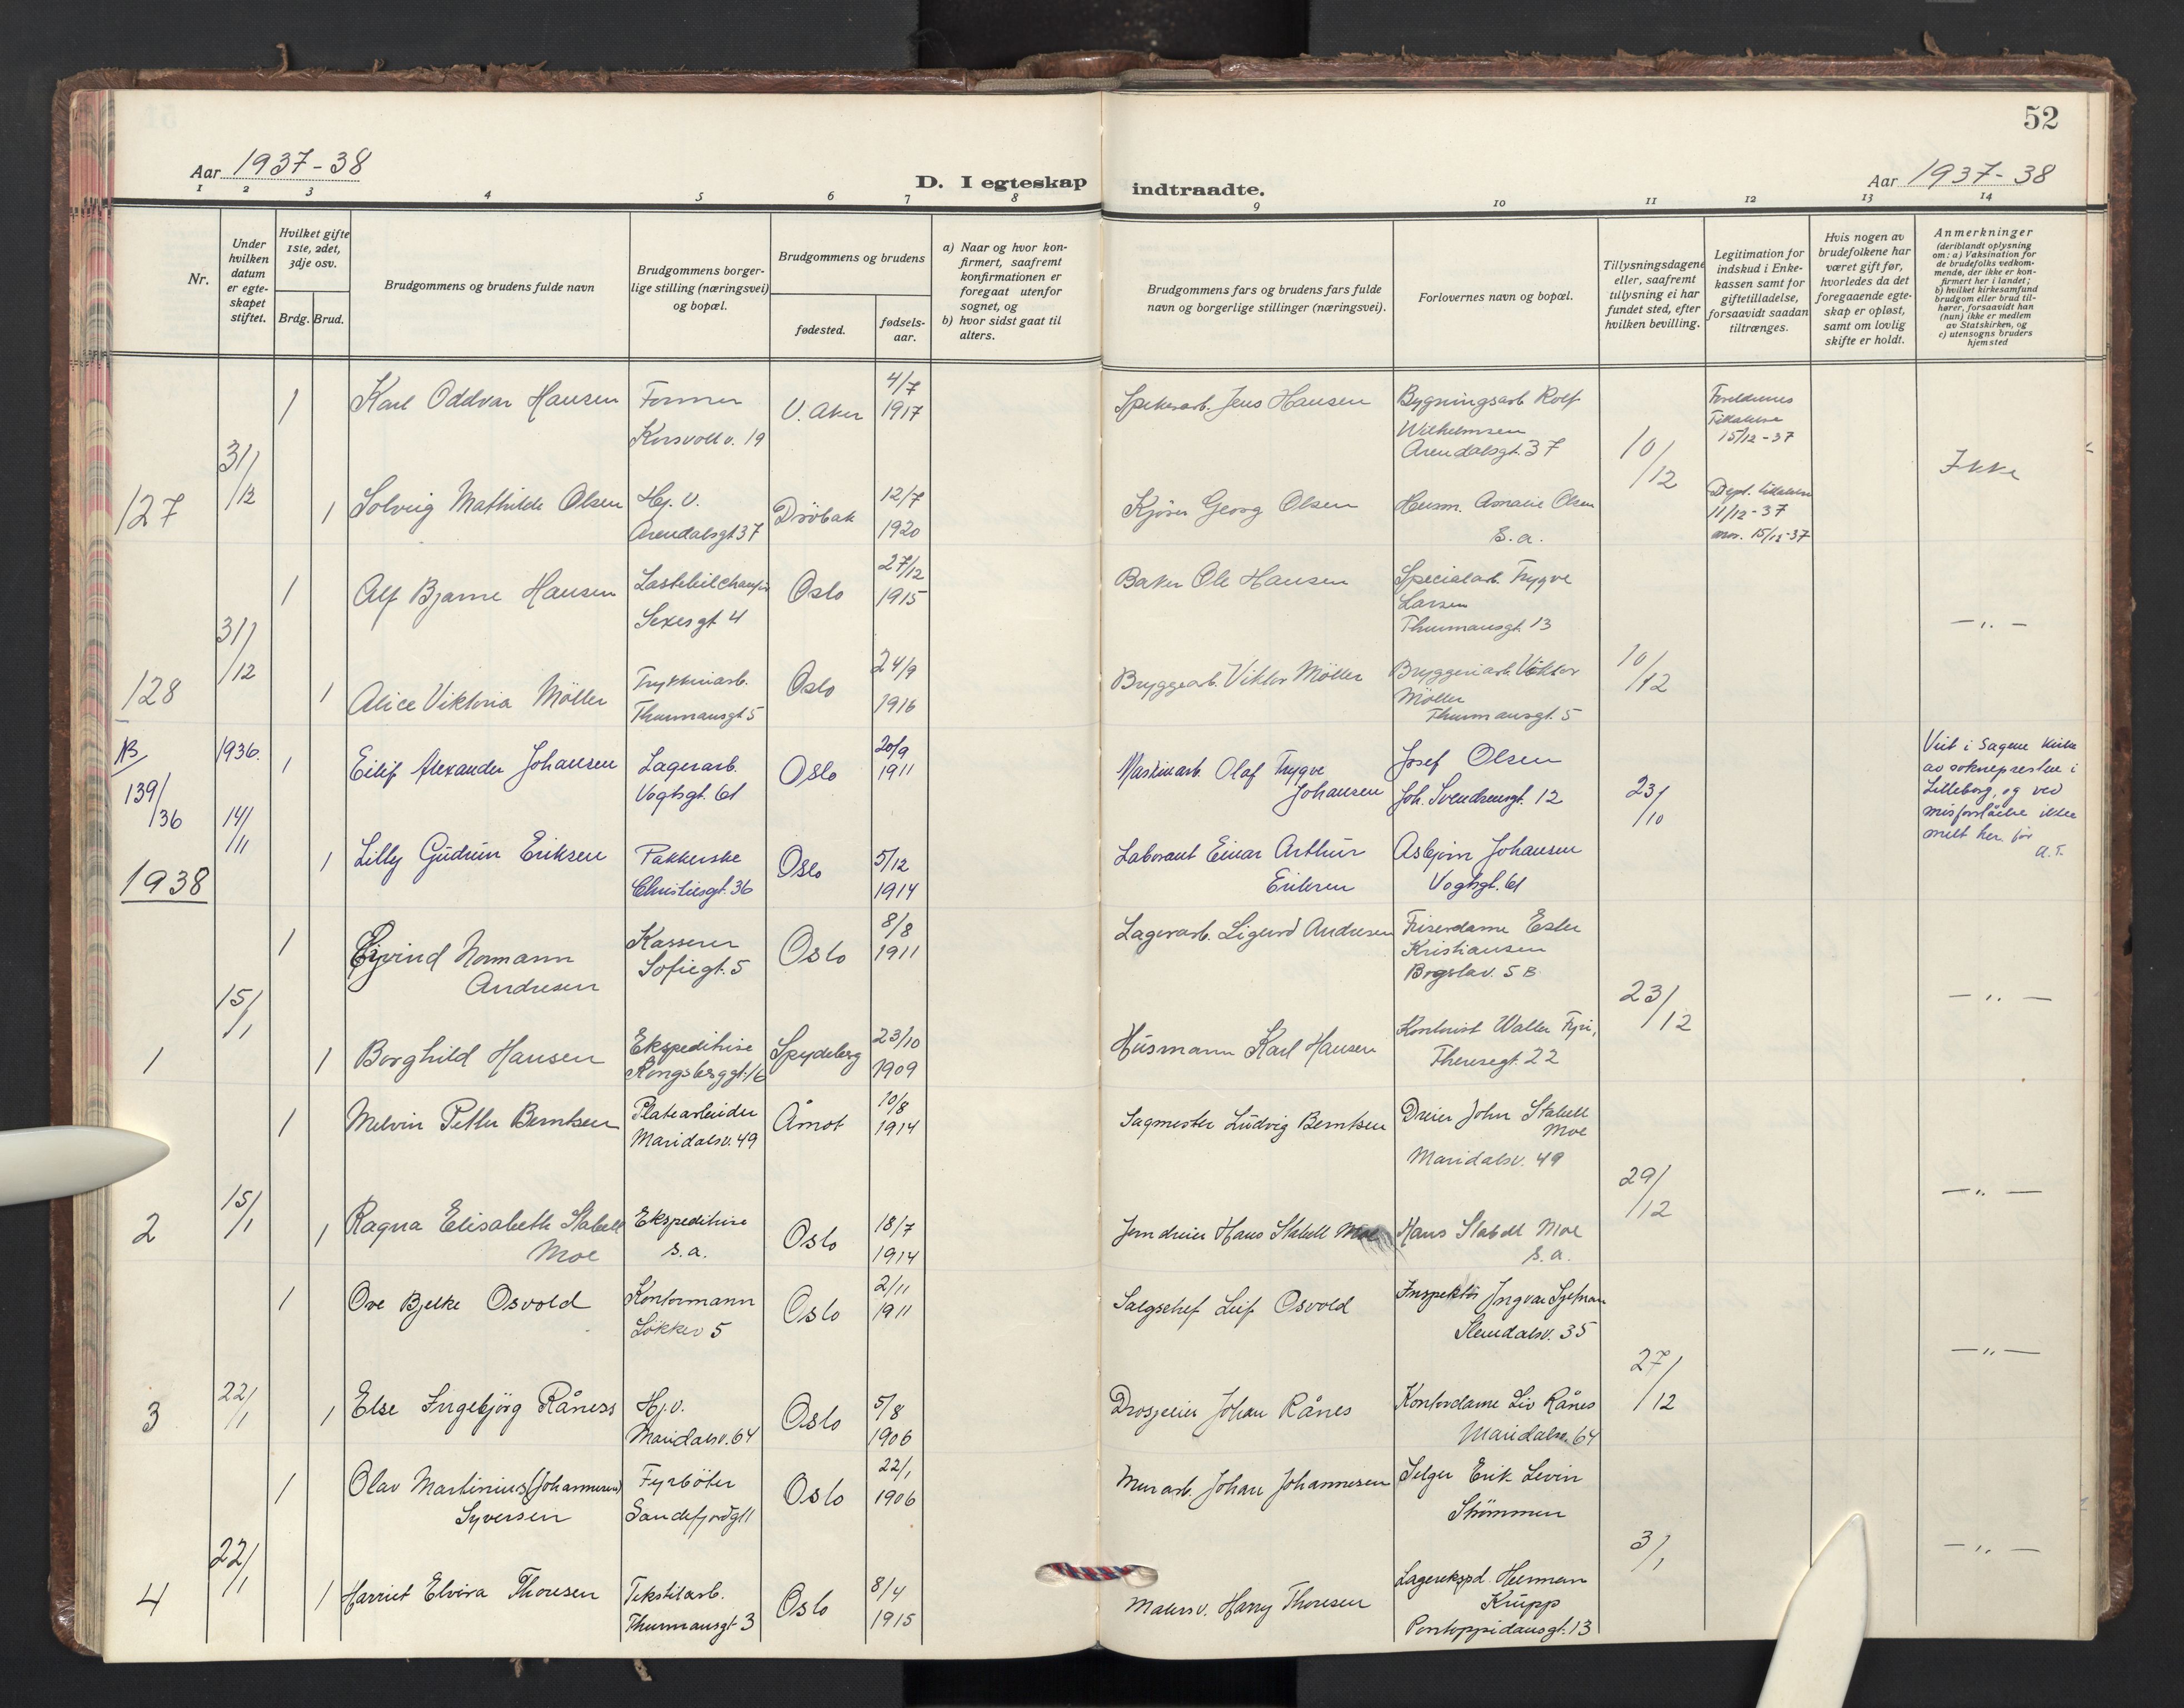 52
Aar 1937-38
D. I egteskap indtraadte.
Aar 1937-38
1 2 3 4 5 6 7 8 9 10 11 12 13 14
Nr.
Under hvilken datum er egteskapet stiftet.
Hvilket gifte 1ste, 2det, 3dje osv.
Brdg. Brud.
Brudgommens og brudens fulde navn
Brudgommens borgerlige stilling (næringsvei) og bopæl.
Brudgommens og brudens
fødested.
fødselsaar.
a) Naar og hvor konfirmert, saafremt konfirmationen er foregaat utenfor sognet, og
b) hvor sidst gaat til alters.
Brudgommens fars og brudens fars fulde navn og borgerlige stillinger (næringsvei).
Forlovernes navn og bopæl.
Tillysningsdagene eller, saafremt tillysning ei har fundet sted, efter hvilken bevilling.
Legitimation for indskud i Enkekassen samt for giftetilladelse, forsaavidt saadan tiltrænges.
Hvis nogen av brudefolkene har været gift før, hvorledes da det foregaaende egteskap er opløst, samt om lovlig skifte er holdt.
Anmerkninger
(deriblandt oplysning om: a) Vaksination for de brudefolks vedkommende, der ikke er konfirmert her i landet; b) hvilket kirkesamfund brudgom eller brud tilhører, forsaavidt han (hun) ikke er medlem av Statskirken, og c) utensogns bruders hjemsted
127 31/12
1 Karl Oddvar Hansen Former Korsvollv. 19 V. Aker 4/7 1917 Spikerarb. Jens Hansen Bygningsarb. Rolf Wilhelmsen Arendalsgt. 37 10/12 Foreldrenes Tillatelse 15/12-37 Ikke
1 Solveig Mathilde Olsen Hj. v. Arendalsgt 37 Dröbak 12/7 1920 Kjörer Georg Olsen Husm. Amalie Olsen S. a. Dept. tillatelse 11/12-37 mor. 15/12-37
128 31/12
1 Alf Bjarne Hansen Lastebilchauffør Sexesgt 4 Oslo 27/12 1915 Baker Ole Hansen Specialarb. Trygve Larsen Thurmansgt. 13 10/12 - " -
1 Alice Viktoria Möller Trykkeriarb. Thurmansgt. 5 Oslo 24/9 1916 Bryggearb. Viktor Möller Bryggeriarb. Viktor Möller Thurmansgt. 5
NB 139/36 1936. 14/11
1 Eilif Alexander Johansen Lagerarb. Vogtsgt. 61 Oslo 20/9 1911 Maskinarb. Olaf Trygve Johansen Josef Olsen Joh. Svendsensgt. 12 23/10 Viet i Sagene kirke av soknepresten i Lilleborg, og ved misforståelse ikke meldt her før A.T.
1 Lilly Gudrun Eriksen Pakkerske Christiesgt. 36 Oslo 5/12 1914 Laborant Einar Arthur Eriksen Asbjørn Johansen Vogtsgt. 61
1938
1 15/1
1 Ejvind Normann Andresen Kasserer Sofiegt. 5 Oslo 8/8 1911 Lagerarb. Sigurd Andresen Friserdame Ester Kristiansen Bogslav. 5 B 23/12 - " -
1 Borghild Hansen Ekspeditrise Kongsberggt. 16 Spydeberg 23/10 1909 Husmann Karl Hansen Kontorist Walter Fyri, Theresegt. 22
2 15/1
1 Melvin Petter Berntsen Platearbeider Maridalsv. 49 Åmot 10/8 1914 Sagmester Ludvig Berntsen Dreier John Stabell Moe Maridalsv. 49 29/12 - " -
1 Ragna Elisabeth Stabell Moe Ekspeditrise s. a. Oslo 18/7 1914 Jerndreier Hans Stabell Moe Hans Stabell Moe s. a.
3 22/1
1 Ove Bjelke Osvold Kontormann Lökkev 5 Oslo 2/11 1911 Salgschef Leif Osvold Inspektör Ingvar Stendalsv. 35 27/12 - " -
1 Else Ingebjörg Råness Hj.v. Maridalsv. 64 Oslo 5/8 1906 Drosjeeier Johan Rånes Kontordame Liv Rånes Maridalsv. 64
4 22/1
1 Olav Martinius (Johannesen) Syversen Fyrböter Sandefjordgt 1 Oslo 22/1 1906 Murarb. Johan Johannesen Selger Erik Levin Strömmen 3/1 - " -
1 Harriet Elvira Thoresen Tekstilarb. Thurmansgt 3 Oslo 8/4 1915 Malersv. Harry Thoresen Lagerekspd. Herman Krupp Pontoppidansgt. 13